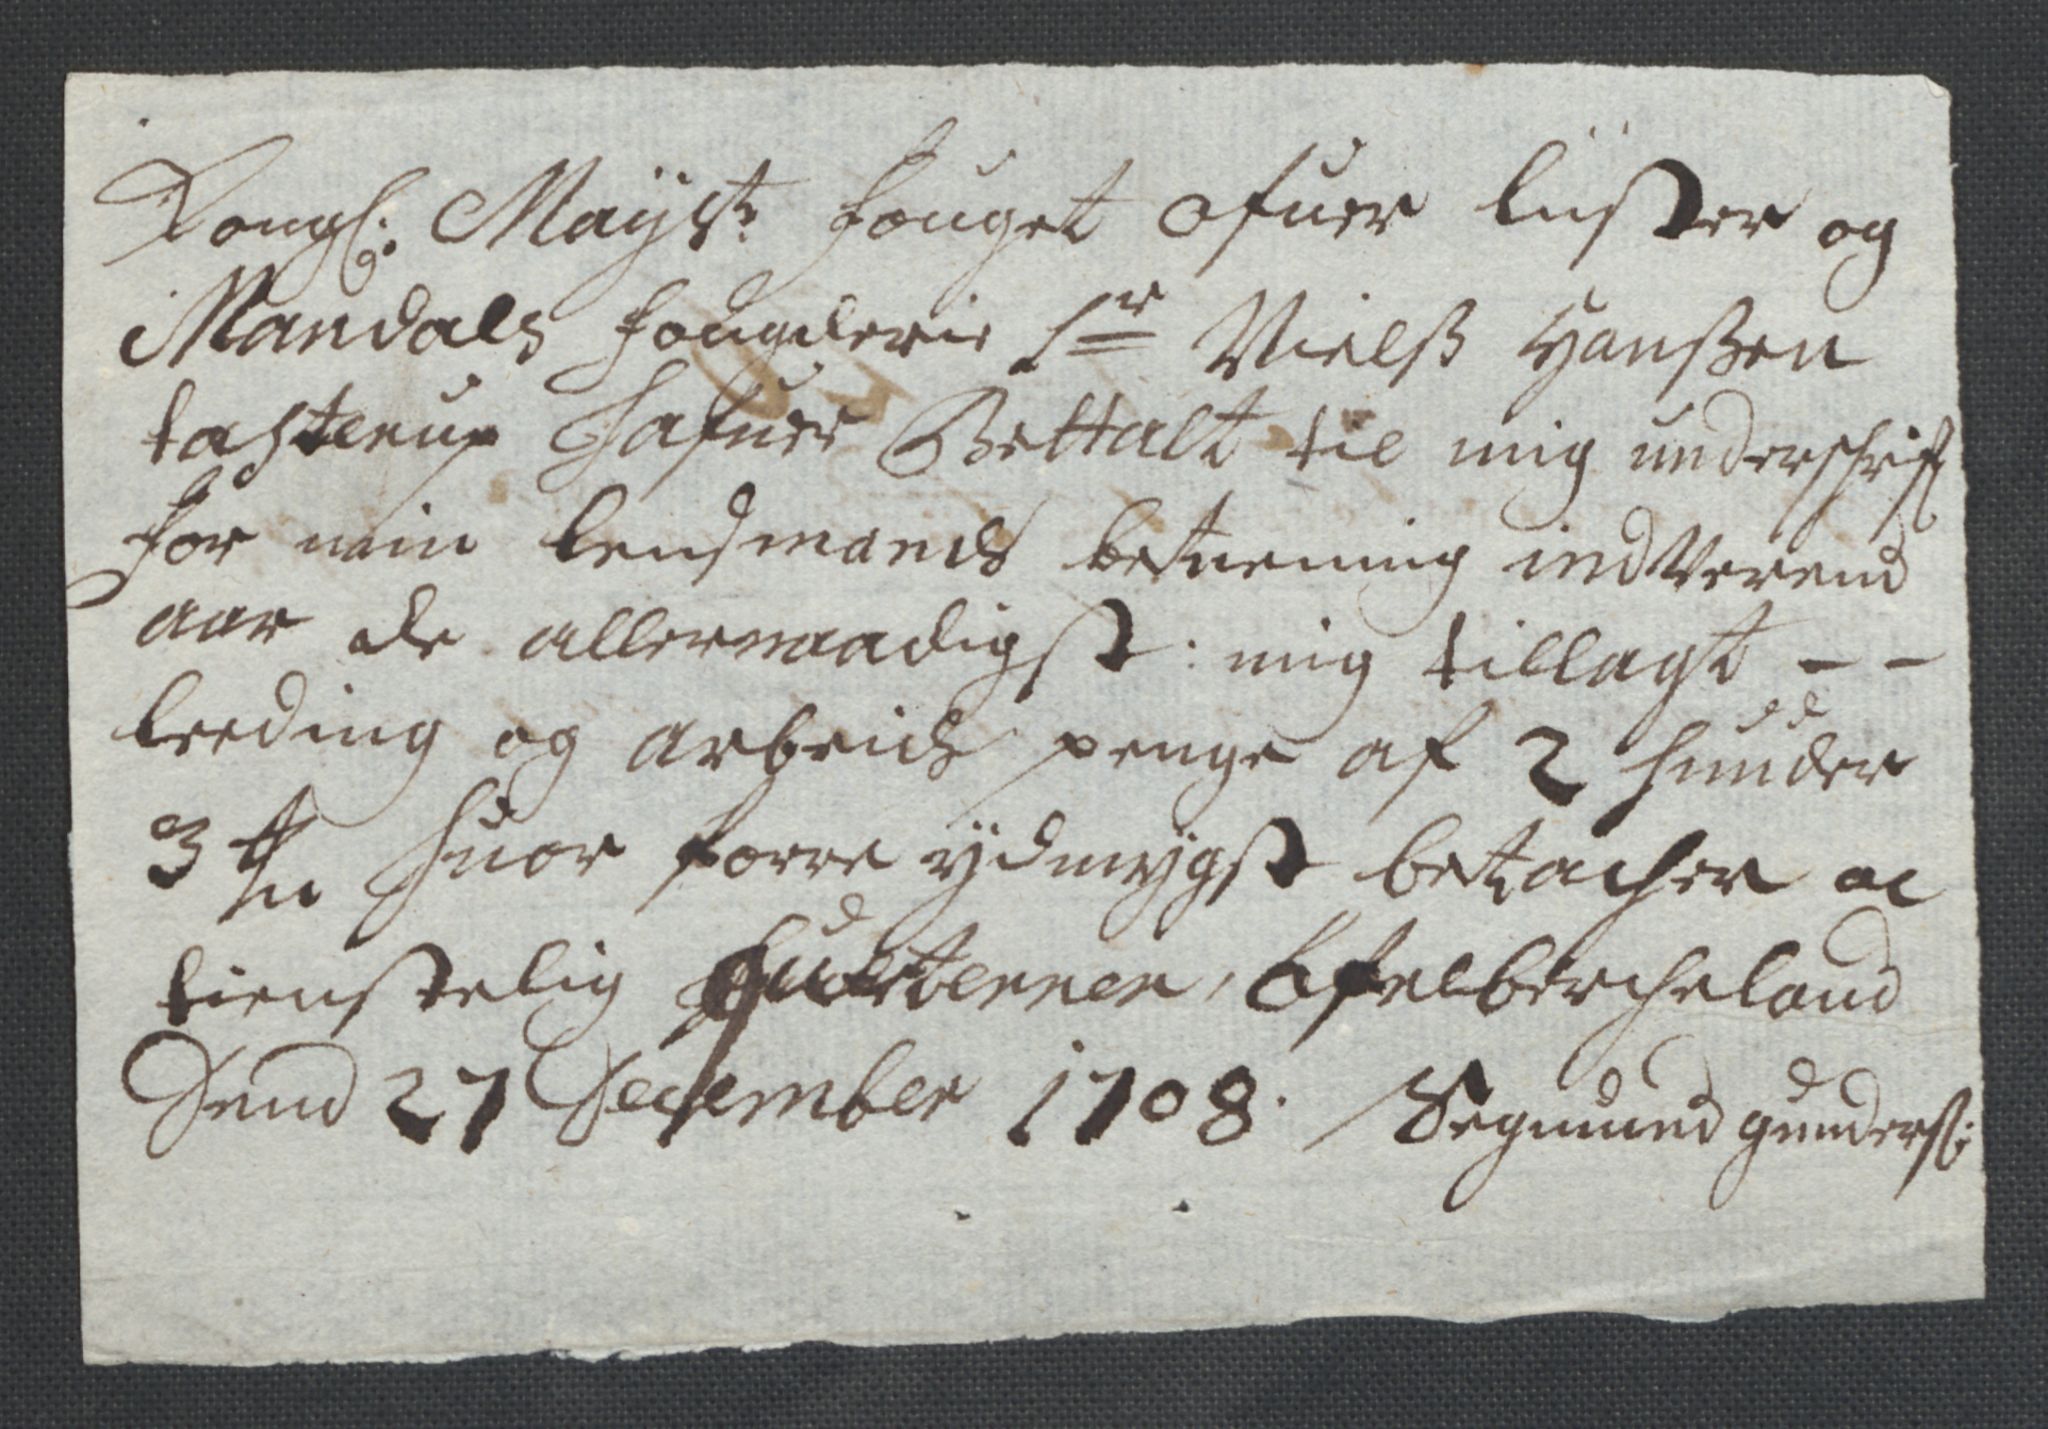 Kongl: Mayst: fouget ofuer lister og
Mandals fougderie Sr Nielß Hanßen
tasterup hafuer Bettalt til mig underschrif
for min lensmands betiening indVerend
aar de allernaadigst: mig tillagt - -
leeding og arbeids penge af 2 hunder
3 huor forre ydmygst betacher oc
tienstelig quiterrer,
Dend 27 December 1708. Segmund gunderß: